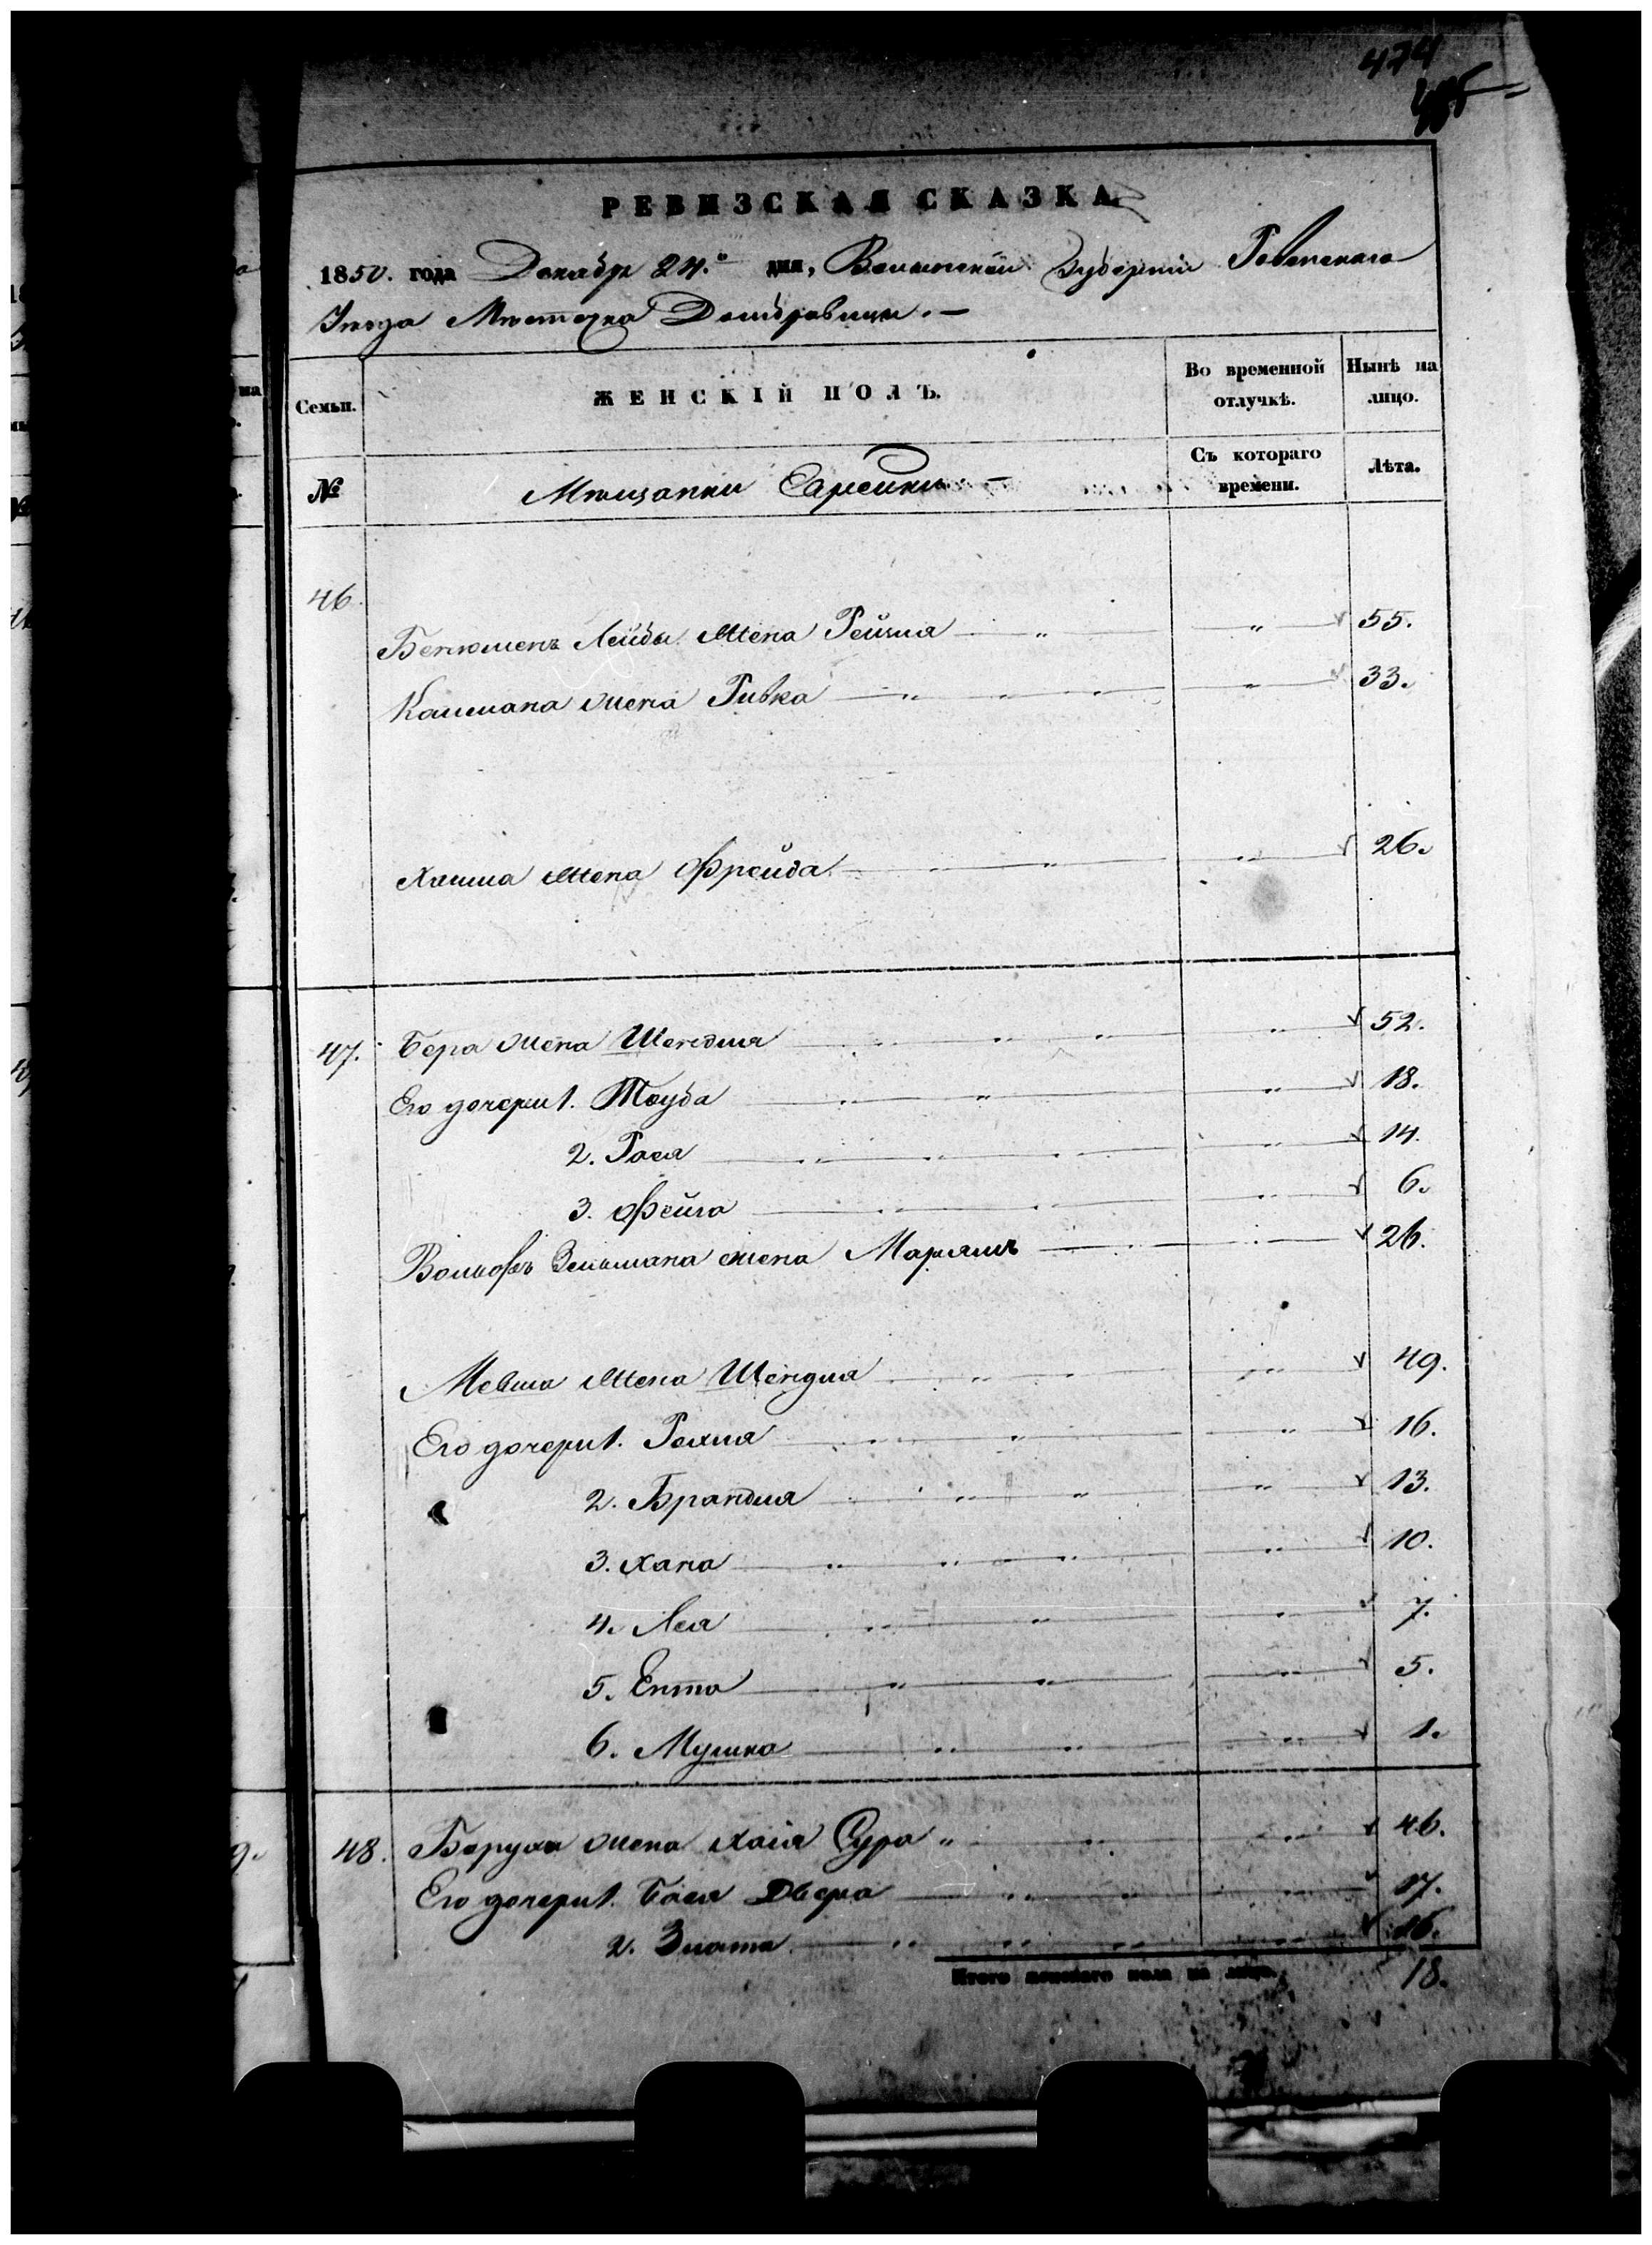 474
РЕВИЗСКАЯ СКАЗКА
1850. года Декабря 24.го дня, Волынской Губернiи Ровенскаго
Уѣзда Мѣстечка Домбровицы. —
Семьи.
ЖЕНСКIЙ ПОЛЪ.
Во временной отлучкѣ.
Нынѣ на лицо.
№
Мѣщанки Евреики —
Съ котораго времени.
Лѣта.
46.
Бенюменъ Лейбы жена Рейзля — " — " — 55.
Калмана жена Ривка — " — " — 33.
Хаима жена Фрейда — " — " — 26.
47. Бера жена Шендля — " — " — 52.
Его дочери 1. Тауба — " — " — 18.
2. Рася — " — " — 14.
3. Фейга — " — " — 6.
Вольфъ Зельмана жена Марьямъ — " — 26.
Мевша жена Шендля — " — " — 49.
Его дочери 1. Рехля — " — " — 16.
2. Брандля — " — " — 13.
3. Хана — " — " — 10.
4. Лея — " — " — 7.
5. Ента — " — " — 5.
6. Мушка — " — " — 1.
48. Баруха жена Хая Сура " — " — 46.
Его дочери 1. Бася Двера — " — " — 17.
2. Злата — " — " — 16.
Итого женскаго пола на лицо. 18.